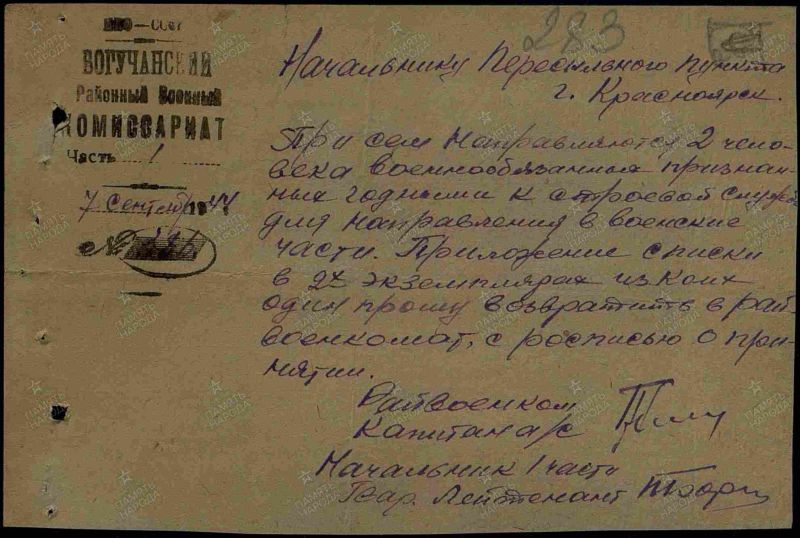 НКО — СССР
БОГУЧАНСКИЙ
Районный Военный
КОМИССАРИАТ
Часть 1
7 Сентяб 1944
№
283
Начальнику Пересыльного пункта
г. Красноярск.
При сем Направляются 2 чело-
века военнообязанных признан-
ных годными к строевой служб
для направления в военские
части. Приложение списки
в 2х экземплярах из коих
один прошу возвратить в рай-
военкомат, с росписью о при-
нятии.
Райвоенком
Капитан а/с
Начальник 1 части
Лейтенант
ПАМЯТЬ НАРОДА